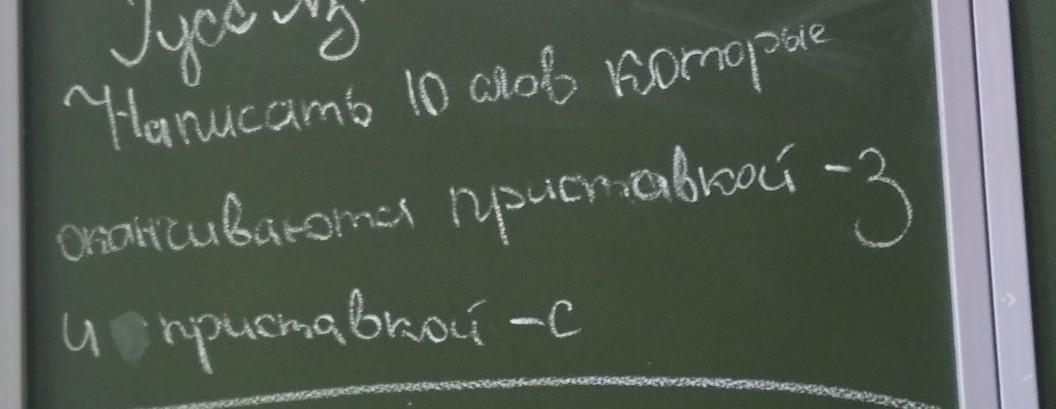 Русс яз
Написать 10 слов которые
оканчиваются приставкой -З
и приставкой -С